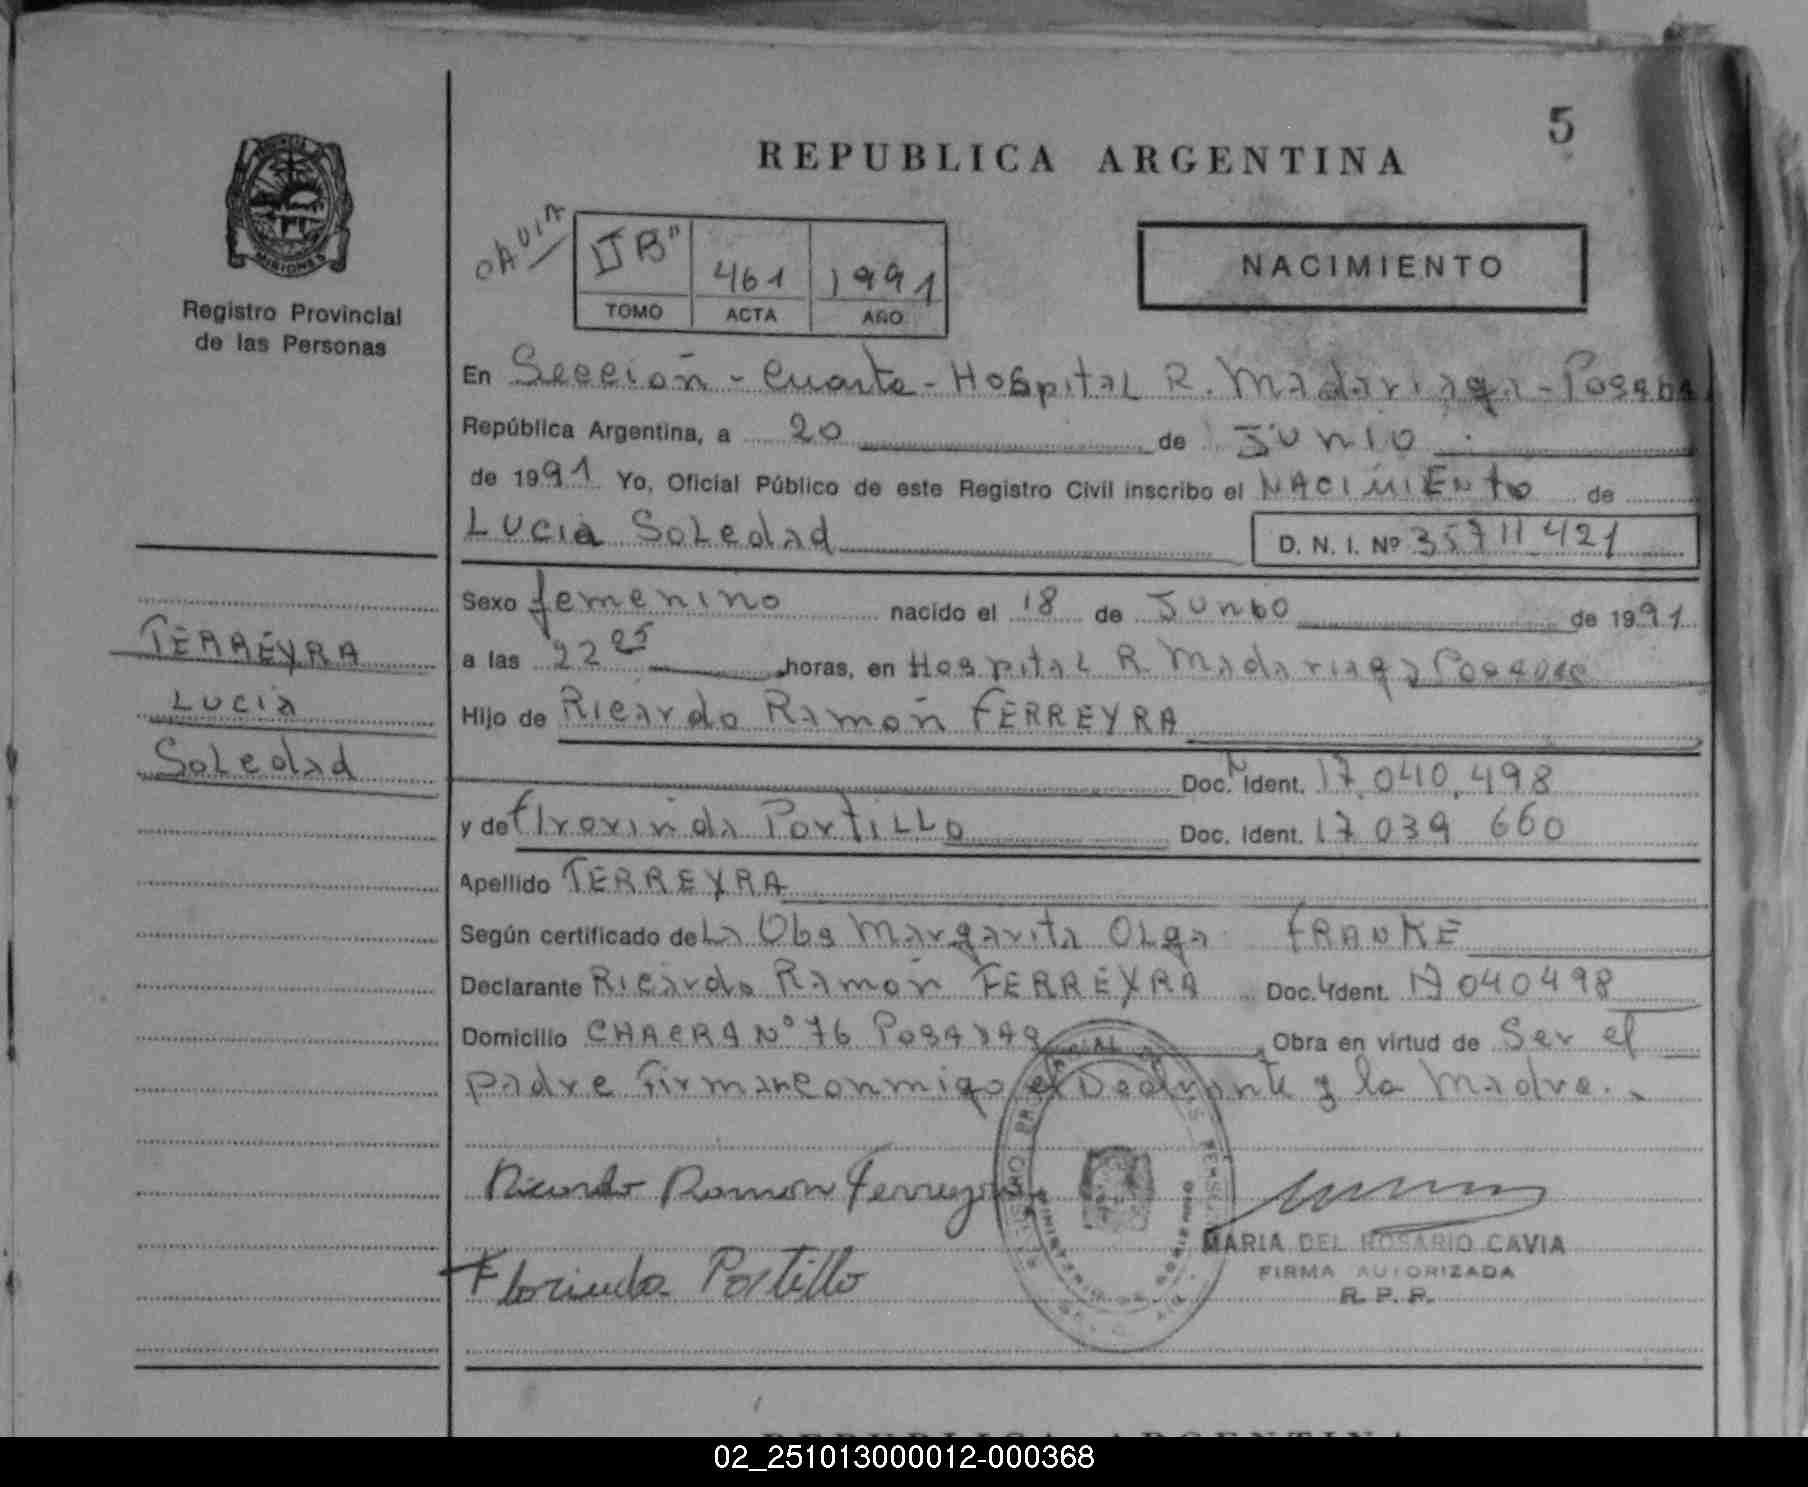 5
REPUBLICA ARGENTINA
MISIONES
Registro Provincial
de las Personas
461 1991
TOMO ACTA AÑO
NACIMIENTO
En Sección - Cuarta - Hospital R. Madariaga - Posadas
República Argentina, a 20 de Junio
de 1991 Yo, Oficial Público de este Registro Civil inscribo el NACIMIENTO de
Lucia Soledad D. N. I. Nº 35711421
Sexo femenino nacido el 18 de Junio de 1991
a las 22 25 horas, en Hospital R. Madariaga Posadas
Hijo de Ricardo Ramón FERREYRA
Doc. Ident. 17.040.498
y de Portillo Doc. Ident. 17 039 660
Apellido FERREYRA
Según certificado de La Obs Margarita Olga FRANKE
Declarante Ricardo Ramón FERREYRA Doc. Ident. 17040498
Domicilio CHACRA Nº 76 Posadas Obra en virtud de Ser el
padre Firman conmigo el Declarante y la Madre.
FERREYRA
Lucia
Soledad
Ricardo Ramon Ferreyra
Florinda Portillo
MARIA DEL ROSARIO CAVIA
FIRMA AUTORIZADA
R. P. P.
REPUBLICA ARGENTINA
02_251013000012-000368